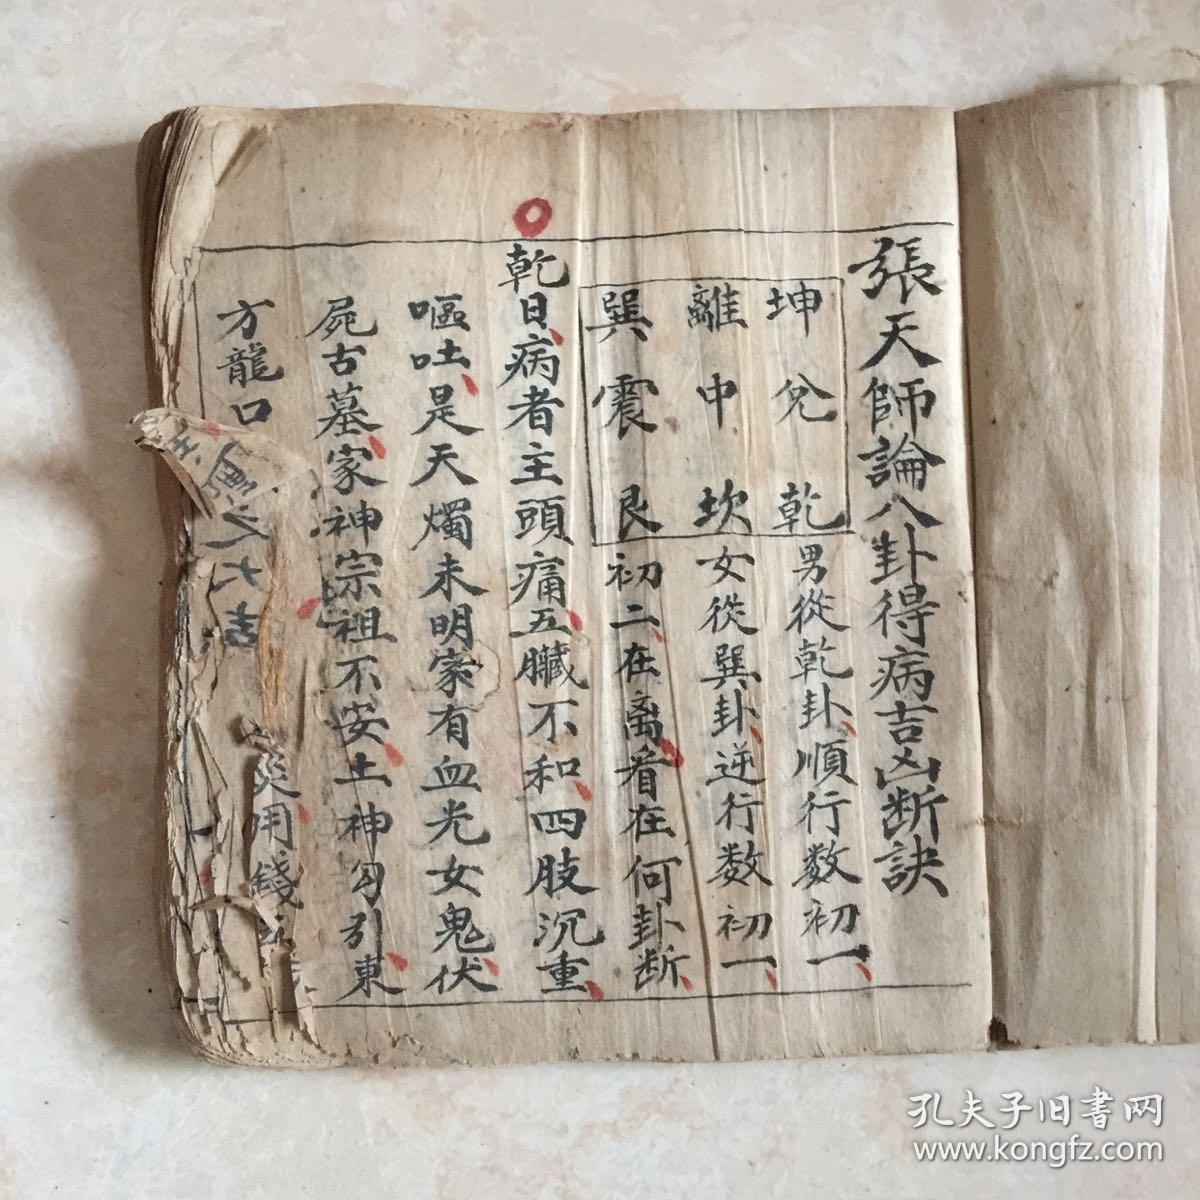 張天師論八卦得病吉凶断訣
坤兌乾男從乾卦順行数初一
離中坎女從巽卦逆行数初一
巽震艮初二在离看在何卦断
乾日病者主頭痛五臟不和四肢沉重
嘔吐是天燭未明家有血光女鬼伏
屍古墓家神宗祖不安土神勾引東
方龍口
用錢
孔夫子旧书网
www.kongfz.com